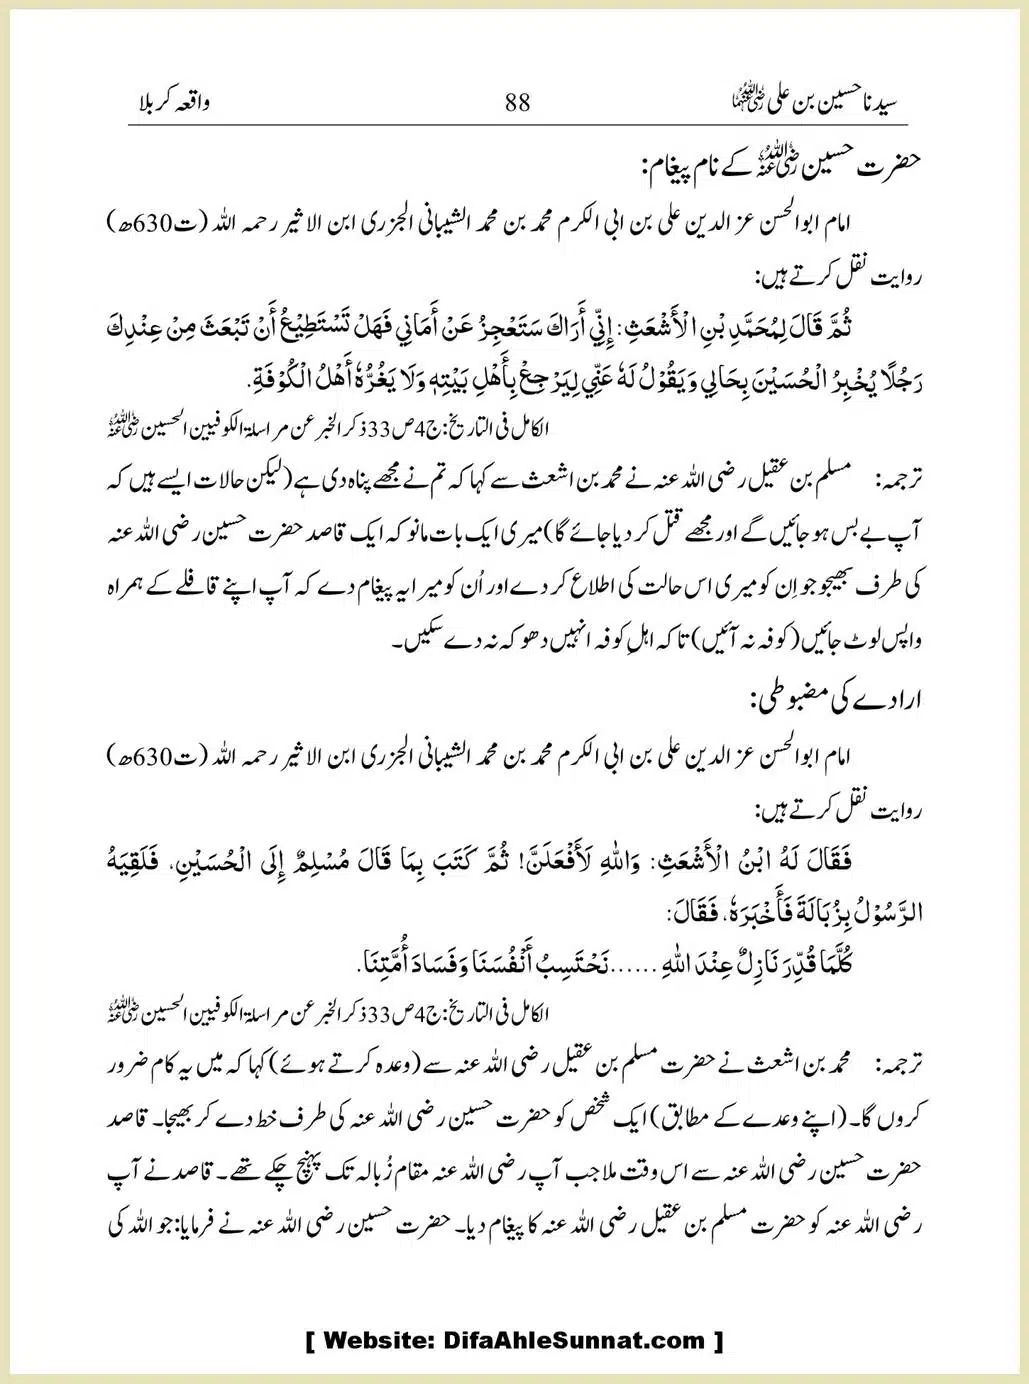 سیدنا حسین بن علی رضی اللہ عنہما 88 واقعہ کربلا
حضرت حسین رضی اللہ عنہ کے نام پیغام:
امام ابوالحسن عز الدین علی بن ابی الکرم محمد بن محمد الشیبانی الجزری ابن الاثیر رحمہ اللہ (ت630ھ)
روایت نقل کرتے ہیں:
ثُمَّ قَالَ لِمُحَمَّدِ بْنِ الْأَشْعَثِ: إِنِّي أَرَاكَ سَتَعْجِزُ عَنْ أَمَانِي فَهَلْ تَسْتَطِيْعُ أَنْ تَبْعَثَ مِنْ عِنْدِكَ
رَجُلًا يُخْبِرُ الْحُسَيْنَ بِحَالِي وَيَقُوْلُ لَهٗ عَنِّي لِيَرْجِعْ بِأَهْلِ بَيْتِهٖ وَلَا يَغُرُّهٗ أَهْلُ الْكُوْفَةِ.
الکامل فی التاریخ: ج4ص33ذکر الخبر عن مراسلۃ الکوفیین الحسین رضی اللہ عنہ
ترجمہ: مسلم بن عقیل رضی اللہ عنہ نے محمد بن اشعث سے کہا کہ تم نے مجھے پناہ دی ہے (لیکن حالات ایسے ہیں کہ
آپ بے بس ہو جائیں گے اور مجھے قتل کر دیا جائے گا) میری ایک بات مانو کہ ایک قاصد حضرت حسین رضی اللہ عنہ
کی طرف بھیجو جو اِن کو میری اس حالت کی اطلاع کر دے اور اُن کو میرا یہ پیغام دے کہ آپ اپنے قافلے کے ہمراہ
واپس لوٹ جائیں (کوفہ نہ آئیں) تاکہ اہلِ کوفہ انہیں دھوکہ نہ دے سکیں۔
ارادے کی مضبوطی:
امام ابوالحسن عز الدین علی بن ابی الکرم محمد بن محمد الشیبانی الجزری ابن الاثیر رحمہ اللہ (ت630ھ)
روایت نقل کرتے ہیں:
فَقَالَ لَهُ ابْنُ الْأَشْعَثِ: وَاللّٰهِ لَأَفْعَلَنَّ! ثُمَّ كَتَبَ بِمَا قَالَ مُسْلِمٌ إِلَى الْحُسَيْنِ، فَلَقِيَهُ
الرَّسُوْلُ بِزُبَالَةَ فَأَخْبَرَهٗ، فَقَالَ:
كُلَّمَا قُدِّرَ نَازِلٌ عِنْدَ اللّٰهِ ......نَحْتَسِبُ أَنْفُسَنَا وَفَسَادَ أُمَّتِنَا.
الکامل فی التاریخ: ج4ص33ذکر الخبر عن مراسلۃ الکوفیین الحسین رضی اللہ عنہ
ترجمہ: محمد بن اشعث نے حضرت مسلم بن عقیل رضی اللہ عنہ سے (وعدہ کرتے ہوئے) کہا کہ میں یہ کام ضرور
کروں گا۔ (اپنے وعدے کے مطابق) ایک شخص کو حضرت حسین رضی اللہ عنہ کی طرف خط دے کر بھیجا۔ قاصد
حضرت حسین رضی اللہ عنہ سے اس وقت ملا جب آپ رضی اللہ عنہ مقام زُبالہ تک پہنچ چکے تھے۔ قاصد نے آپ
رضی اللہ عنہ کو حضرت مسلم بن عقیل رضی اللہ عنہ کا پیغام دیا۔ حضرت حسین رضی اللہ عنہ نے فرمایا: جو اللہ کی
[ Website: DifaAhleSunnat.com ]